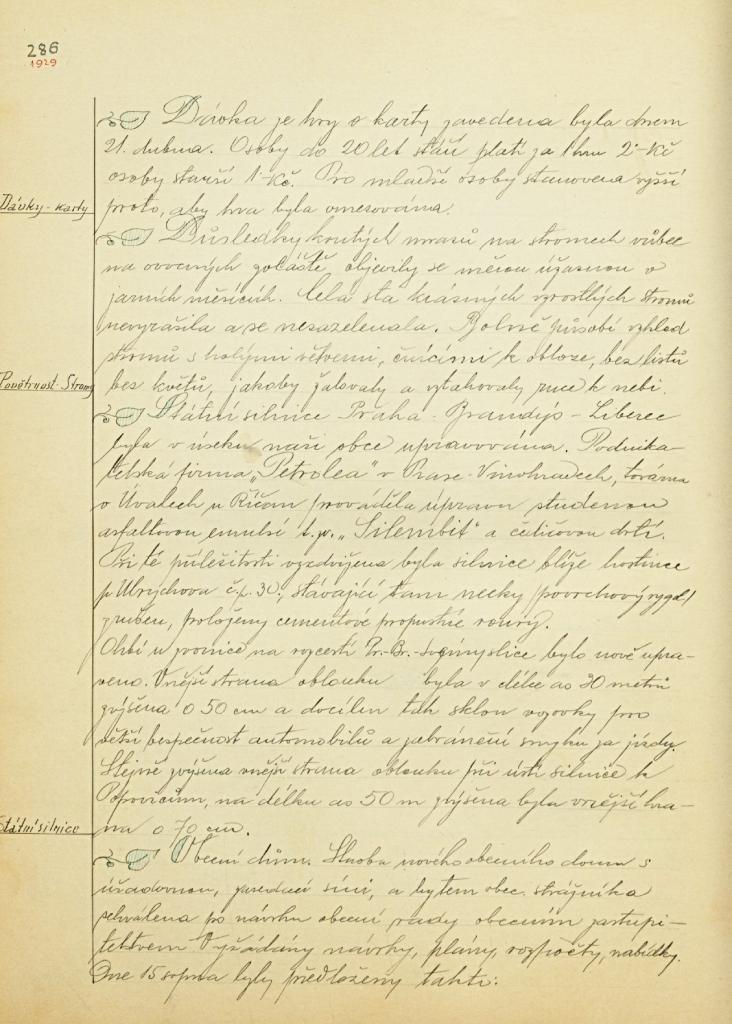 286
1929
Dávka ze hry v karty zavedena byla dnem
21. dubna. Osoby do 20 let stáří platí za 1 hru 2·- Kč
osoby starší 1·- Kč. Pro mladší osoby stanovena vyšší
Dávky - karty
proto, aby hra byla omezována.
Důsledky krutých mrazů na stromech vůbec
na ovocných zvláště, objevily se měrou úžasnou v
jarních měsících. Celá sta krásných vzrostlých stromů
nevyrašila a se nezazelenala. Bolně působí vzhled
stromů s holými větvemi, čnícími k obloze, bez listů
Povětrnost - Stromy
bez květů, jakoby žalovaly a vztahovaly ruce k nebi.
Státní silnice Praha - Brandýs - Liberec
byla v úseku naší obce upravována. Podnika-
telská firma „Petrolea" v Praze - Vinohradech, továrna
v Úvalech u Říčan prováděla úpravu studenou
asfaltovou emulsí t. zv. „Silembit" a čedičovou drtí.
Při té příležitosti vyzdvižena byla silnice blíže hostince
p. Ulrychova č. p. 30, stávající tam necky /povrchový rygol/
zrušen, proloženy cementové propustné roury.
Ohbí u zvonice na rozcestí Br.- byla nově upra-
veno. Vnější strana oblouku byla v délce as 30 metrů
zvýšena o 50 cm a docílen tak sklon vozovky pro
větší bezpečnost automobilů a zabránění smyku za jízdy.
Stejně zvýšena vnější strana oblouku při ústí silnice k
Popovicům, na délku as 50 m zvýšena byla vnější hra-
Státní silnice
na o 70 cm.
Obecní dům. Stavba nového obecního domu s
úřadovnou, zasedací síní, a bytem obec. strážníka
schválena po návrhu obecní rady obecním zastupi-
telstvem. Vyžádány návrhy, plány, rozpočty, nabídky.
Dne 15 srpna byly předloženy takto: